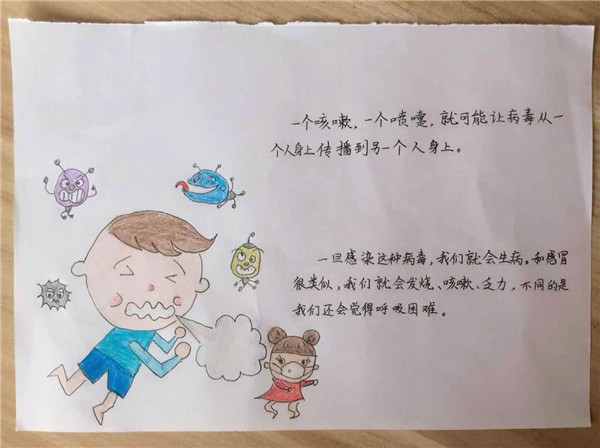 一个咳嗽，一个喷嚏，就可能让病毒从一
个人身上传播到另一个人身上。
一旦感染这种病毒，我们就会生病。和感冒
很类似，我们就会发烧、咳嗽、乏力，不同的是
我们还会觉得呼吸困难。